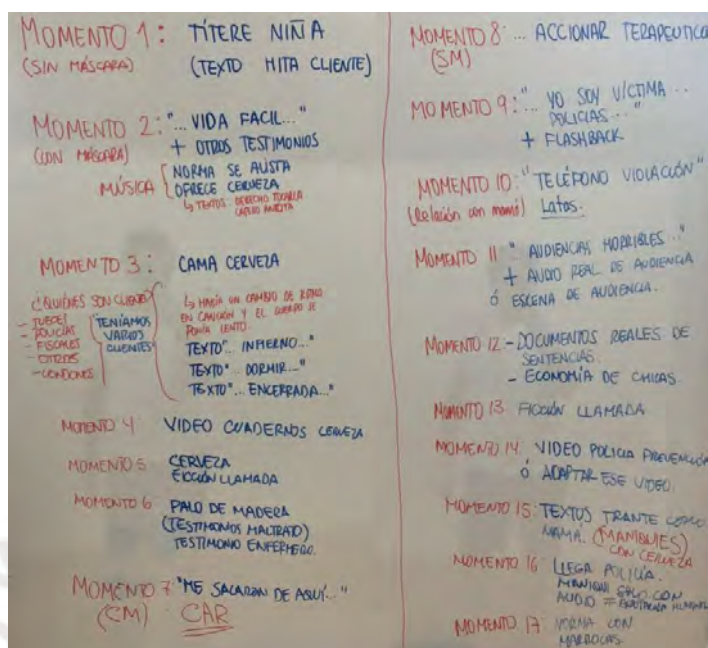 MOMENTO 1: TÍTERE NIÑA
(SIN MÁSCARA) (TEXTO MITA CLIENTE)
MOMENTO 2: "... VIDA FACIL..."
(CON MÁSCARA) + OTROS TESTIMONIOS
MÚSICA
NORMA SE ALISTA
OFRECE CERVEZA
↳ TEXTOS DERECHO
MOMENTO 3: CAMA CERVEZA
¿QUIÉNES SON CLIENTES
- JUECES
- POLICÍAS
- FISCALES
- OTROS
- CONDONES
TENÍAMOS
VARIOS
CLIENTES
↳ HACÍA UN CAMBIO DE RITMO
EN CANCIÓN Y EL CUERPO SE
PONÍA LENTO.
TEXTO "... INFIERNO..."
TEXTO "... DORMIR..."
TEXTO "... ENCERRADA..."
MOMENTO 4 VIDEO CUADERNOS CERVEZA
MOMENTO 5 CERVEZA
FICCIÓN LLAMADA
MOMENTO 6 PALO DE MADERA
(TESTIMONIOS MALTRATO)
TESTIMONIO ENFERMERO.
MOMENTO 7 "ME SACARON DE AQUÍ..."
(CM) CAR
MOMENTO 8: ... ACCIONAR TERAPEUTICO
(SM)
MOMENTO 9: "... YO SOY VÍCTIMA...
POLICIAS..."
+ FLASHBACK
MOMENTO 10: "TELÉFONO VIOLACIÓN"
(Relación con mamá) Latas.
MOMENTO 11 "AUDIENCIAS HORRIBLES..."
+ AUDIO REAL DE AUDIENCIA
ó ESCENA DE AUDIENCIA.
MOMENTO 12 - DOCUMENTOS REALES DE
SENTENCIAS.
- ECONOMÍA DE CHICAS.
MOMENTO 13 FICCIÓN LLAMADA
MOMENTO 14. VIDEO POLICIA PREVENCIÓN
ó ADAPTAR ESE VIDEO.
MOMENTO 15: TEXTOS TRANTE COMO
MAMA. (MANIQUIES)
CON CERVEZA
MOMENTO 16 LLEGA POLICÍA.
MANIQUI SOLO CON
AUDIO =
MOMENTO 17: NORMA CON
MARROCAS